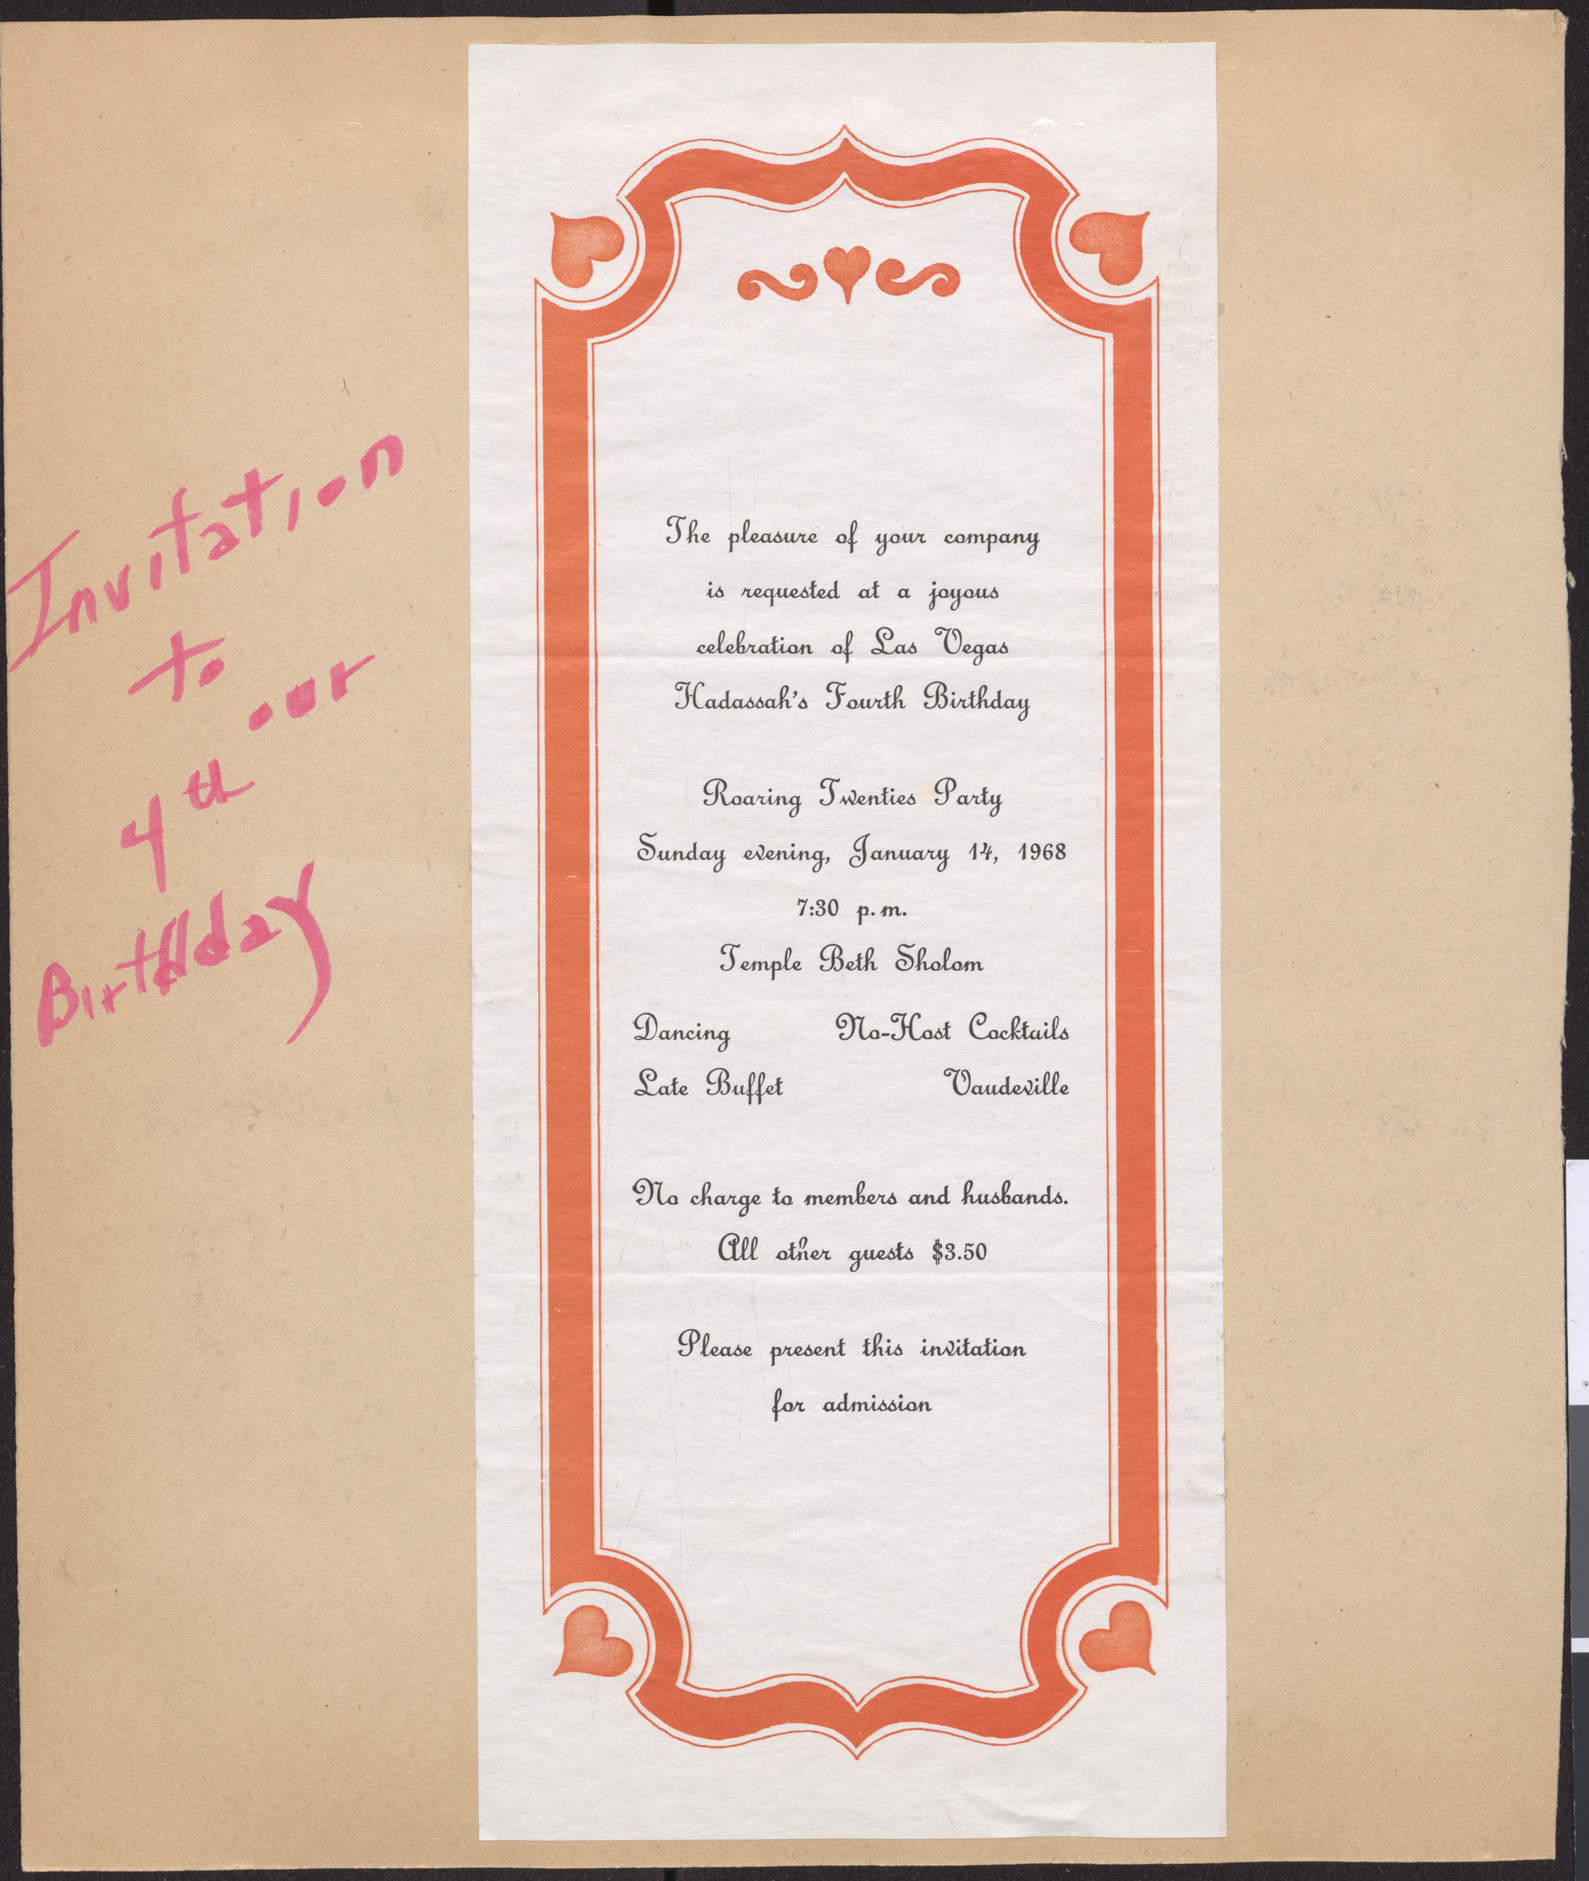 Invitation
to
our
4th
Birthday
The pleasure of your company
is requested at a joyous
celebration of Las Vegas
Hadassah's Fourth Birthday
Roaring Twenties Party
Sunday evening, January 14, 1968
7:30 p.m.
Temple Beth Sholom
Dancing No-Host Cocktails
Late Buffet Vaudeville
No charge to members and husbands.
All other guests $3.50
Please present this invitation
for admission